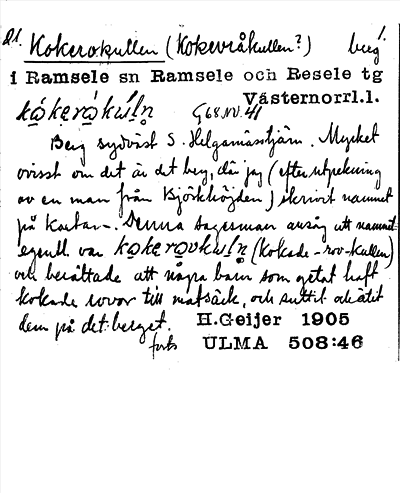 Kokerokullen (Kokevråkullen?) berg 1.
i Ramsele sn Ramsele och Resele tg
Västernorrl.l.
G 68 NV. 41
Berg sydväst S. Helgamässtjärn. Mycket
ovisst om det är det berg, där jag (efter utpekning
av en man från Björkhöjden) skrivit namnet
på kartan. Denna sagesman ansåg att namnet
egentl. var (Kokade-rov-kullen)
och berättade att några barn som getat haft
kokade rovor till matsäck, och suttit och ätit
dem på det berget. H.Geijer 1905
forts ULMA 508:46